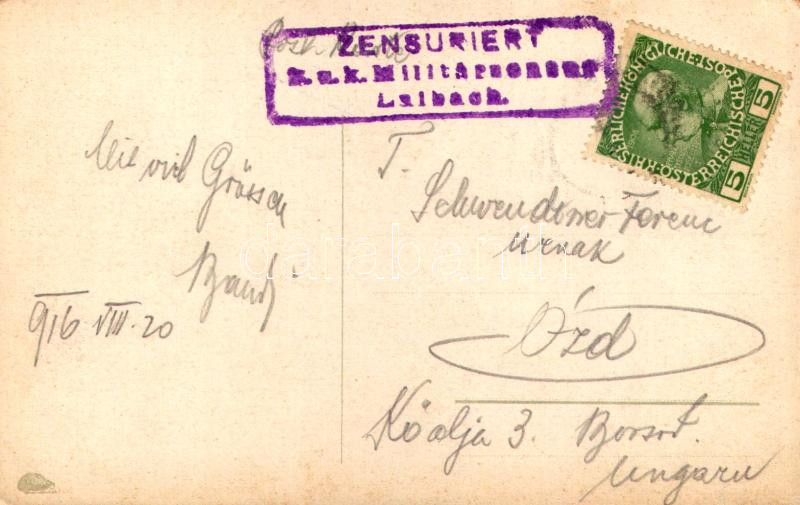 ZENSURIERT
k.u.k. Militärzensur
Laibach.
KAISERLICHE KÖNIGLICHE ÖSTERREICHISCHE POST
5 HELLER 5
Mit viel Grüssen
Bandi
916 VIII. 20
T.
Schwendtner Ferenc
urnak
Ózd
Kőalja 3. Borsod.
Ungarn
darabanth